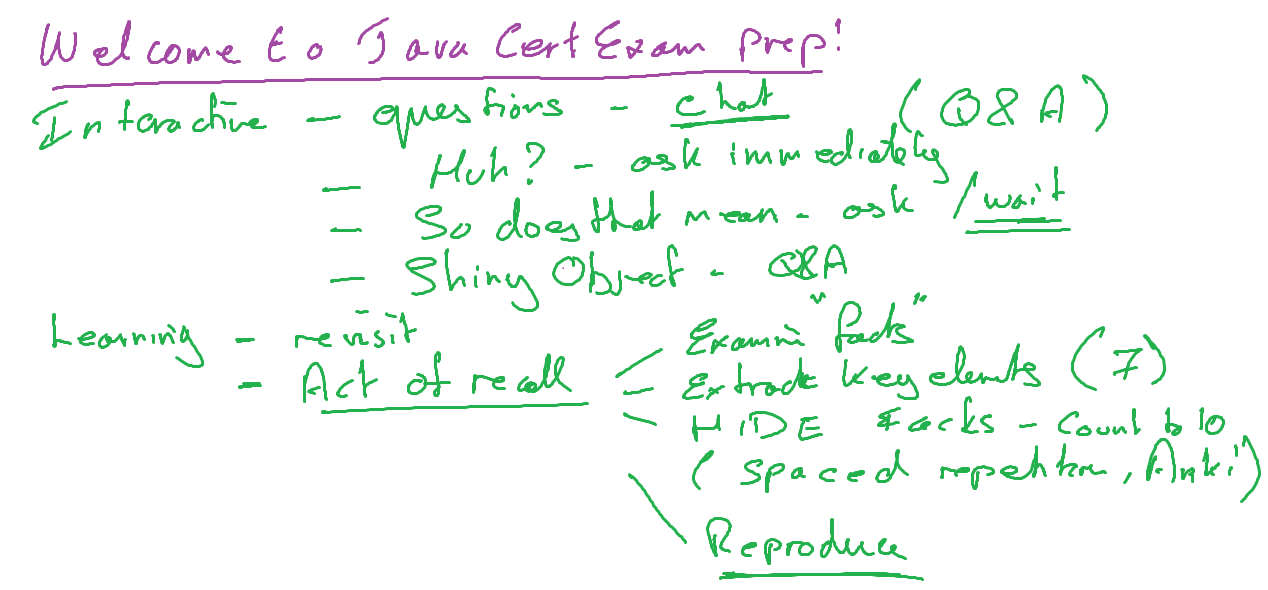 Welcome to Java Cert Exam Prep!
Interactive - questions - chat (Q&A)
- Huh? - ask immediately
- So does that mean - ask / wait
- Shiny Object - Q&A
Learning - revisit
- Act of recall
- Examin "facts"
- Extract key elents (7)
- HIDE Facks - Count to 10
(spaced repetition, Anki")
Reproduce